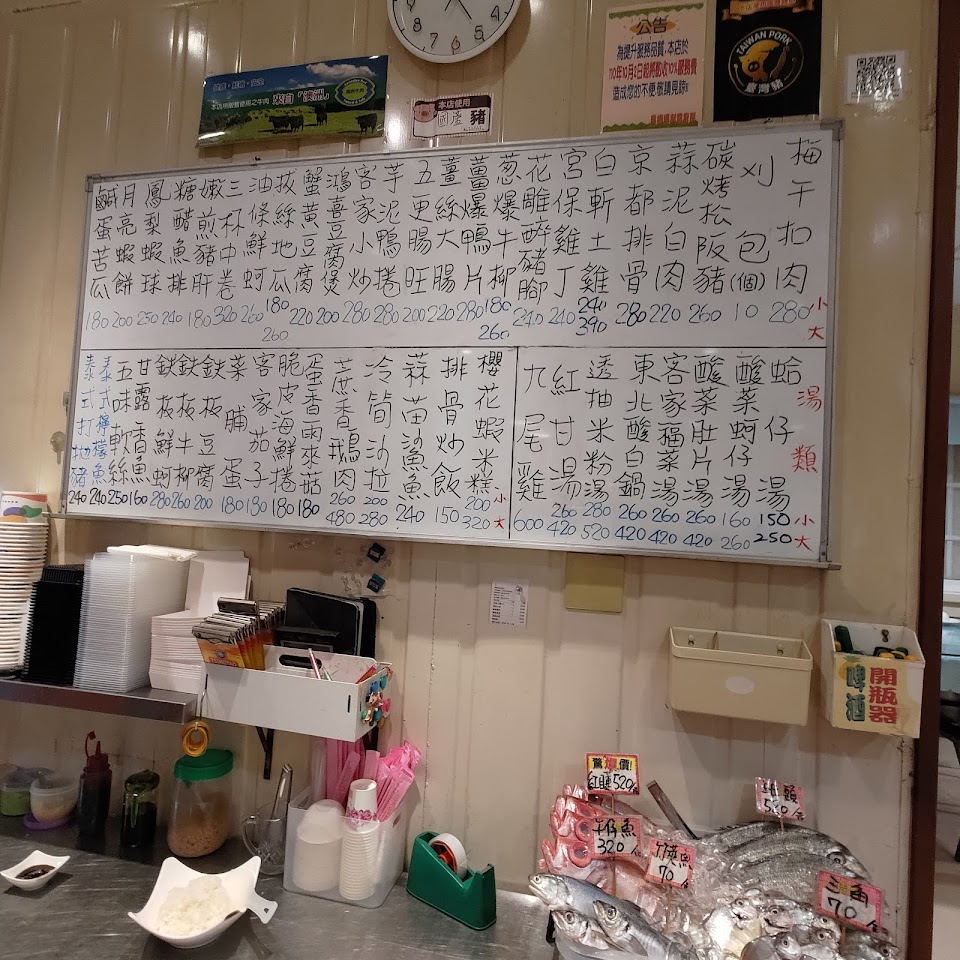 公告
為提升服務品質,本店於
110年10月5日起將酌收10%服務費
造成您的不便 敬請見諒!
TAIWAN PORK
臺灣豬
來自「澳洲」
本店使用
國產豬
梅干扣肉 280
小
大
刈包(個) 10
碳烤松阪豬 260
蒜泥白肉 220
京都排骨 280
白斬土雞 240 390
宮保雞丁 240
花雕醉豬腳 240
葱爆牛柳 180 260
薑爆鴨片 280
薑絲大腸 220
五更腸旺 200
芋泥鴨捲 280
客家小炒 280
鴻喜豆腐煲 200
蟹黃豆腐 220
拔絲地瓜 180 260
油條鮮蚵 260
三杯中卷 320
嫩煎豬肝 180
糖醋魚排 240
鳳梨蝦球 250
月亮蝦餅 200
鹹蛋苦瓜 180
湯類
小
大
蛤仔湯 150 250
酸菜蚵仔湯 160 260
酸菜肚片湯 260 420
客家福菜湯 260 420
東北酸白鍋 260 420
透抽米粉湯 280 520
紅甘湯 260 420
九尾雞 600
櫻花蝦米糕 200 320
小
大
排骨炒飯 150
蒜苗鯊魚 240
冷筍沙拉 200 280
蔗香鵝肉 260 480
蛋香雨來菇 180
脆皮海鮮捲 180
客家茄子 180
菜脯蛋 180
鉄板豆腐 200
鉄板牛柳 260
鉄板鮮蚵 280
甘露香魚 160
五味軟絲 250
泰式檸檬魚 240
泰式打拋豬 240
開瓶器
啤酒
驚爆價!
520
320
70
520
三角
70